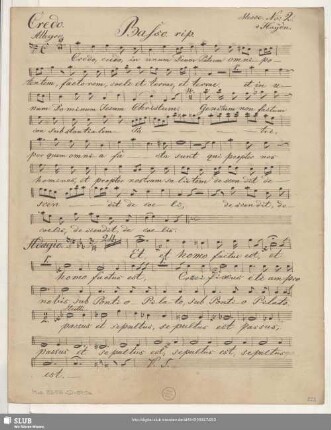 Credo. Basso rip. Messe. No. 2.
Allegro
Haydn.
Credo, credo, in unum Deum Patrem omni-po-
tentem, factorem, coeli et terrae, et terrae et in u-
num Dominum Jesum Christum Genitum non factum
con substantialem Pa - tri,
per quem omnia fa cta sunt qui propter nos
homines, et propter nostram salutem descendit de
scen - dit de coe lis, descendit, de
coelis, descendit, de coelis.
Adagio
Et, et homo factus est, et
homo factus est, etiam pro
nobis sub Ponti-o Pila-to, sub Ponti-o Pilato,
passus et sepultus, sepultus est passus,
passus et sepultus est, sepultus est, sepultus
est. V. S.
Mus.
SLUB
Wir führen Wissen.
http://digital.slub-dresden.de/